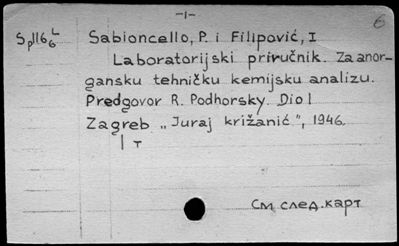 -1-
6
Sp116 L6 Sabioncello, P. i Filipović, I
Laboratorijski priručnik. Za anor-
gansku tehničku kemijsku analizu.
Predgovor R. Podhorsky. Dio I
Zagreb „Juraj križanić", 1946.
1 т
См след. карт